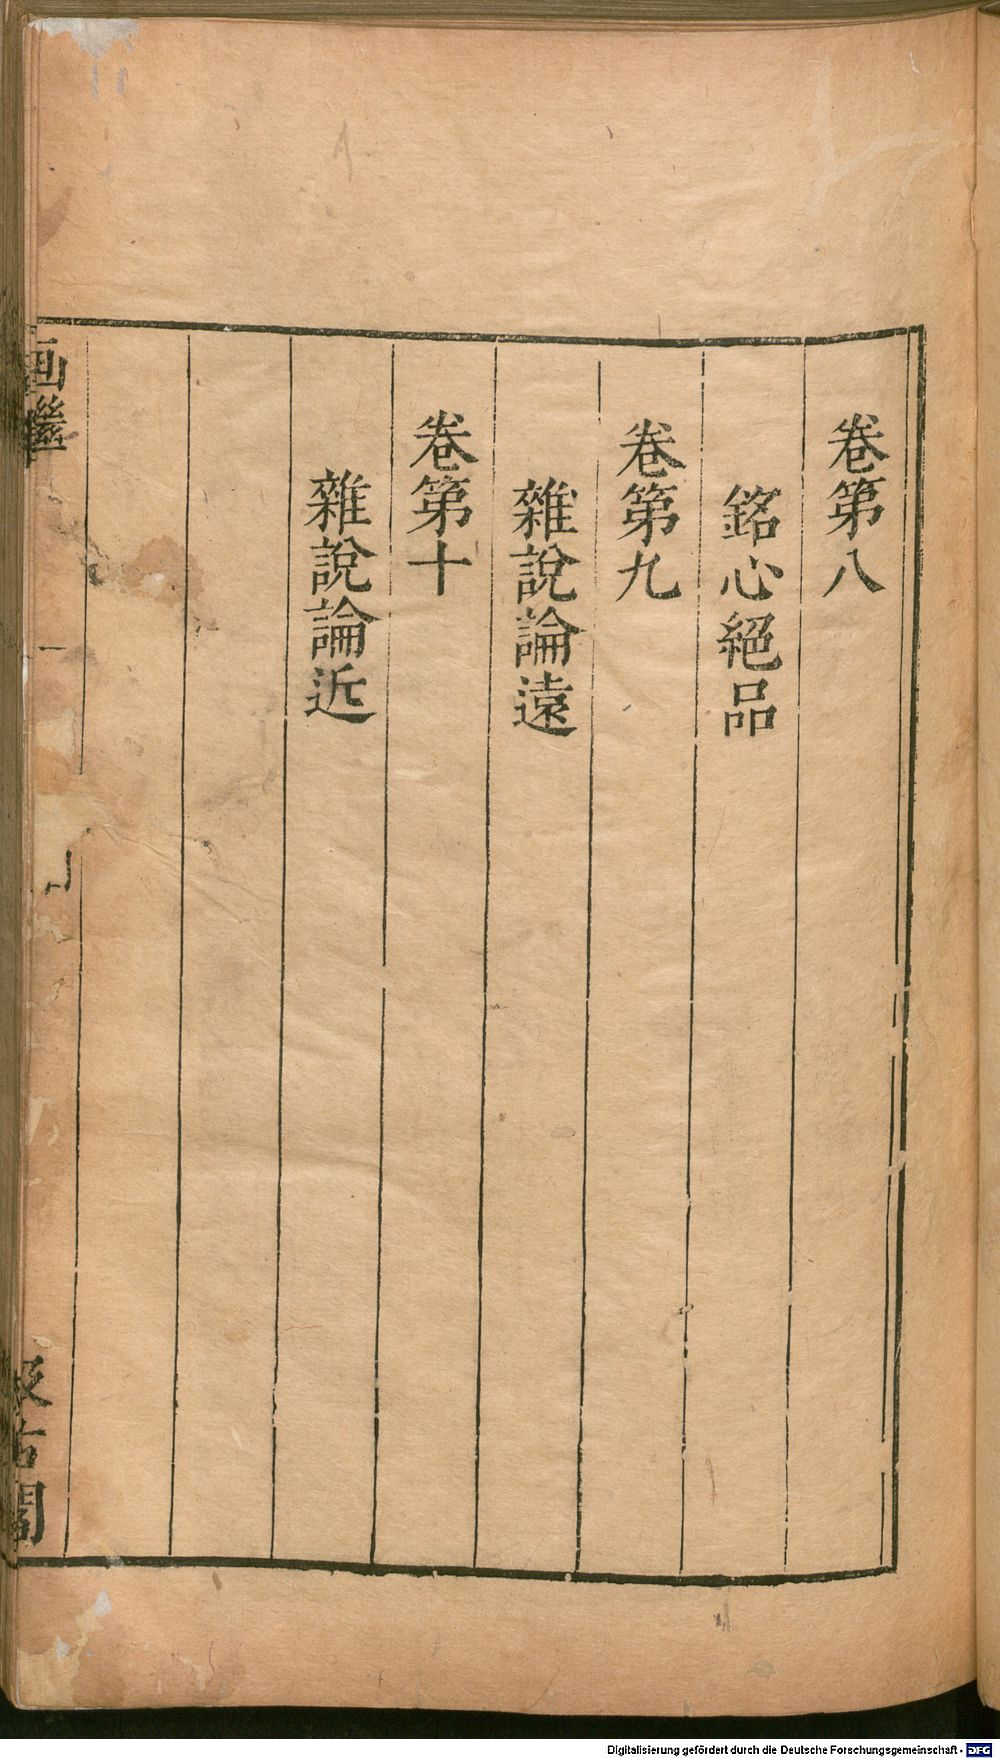 卷第八
銘心絕品
卷第九
雜說論遠
卷第十
雜說論近
画繼
汲古閣
Digitalisierung gefördert durch die Deutsche Forschungsgemeinschaft - DFG